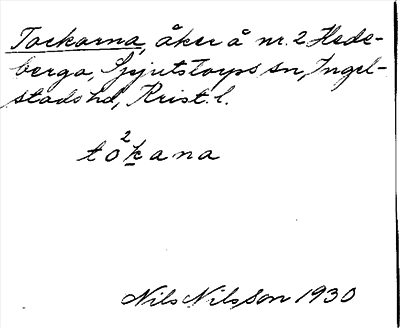 Tockarna, åker å nr. 2 Hede-
berga, Spjutstorps sn, Ingel-
stads hd, Krist. l.
to²kana
Nils Nilsson 1930